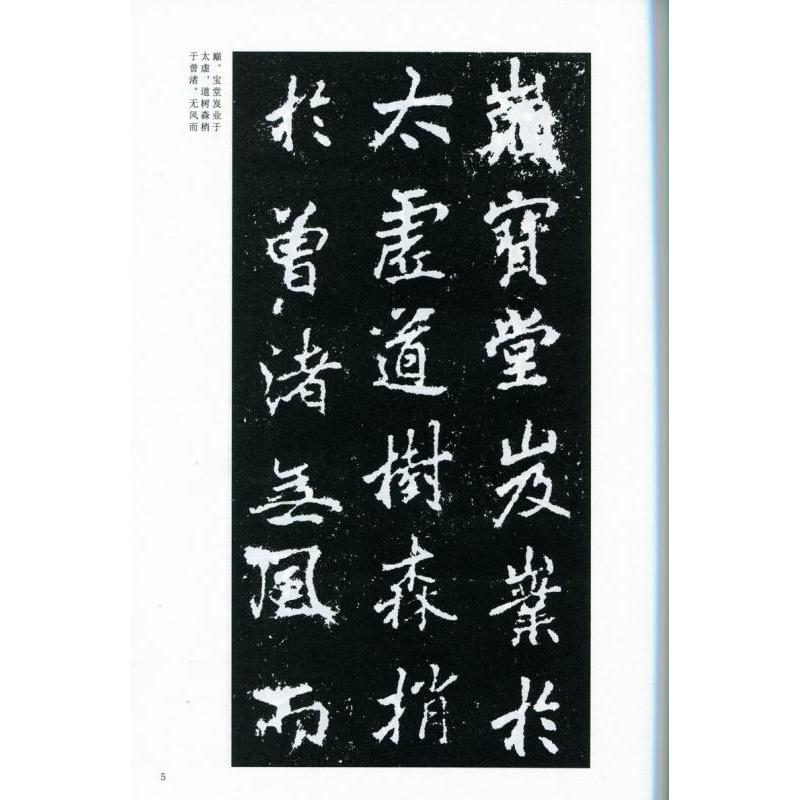 巅。宝堂岌业于
太虚，道树森梢
于曾渚。无风而
巔寶堂岌嶪於
太虛道樹森梢
於曾渚無風而
5